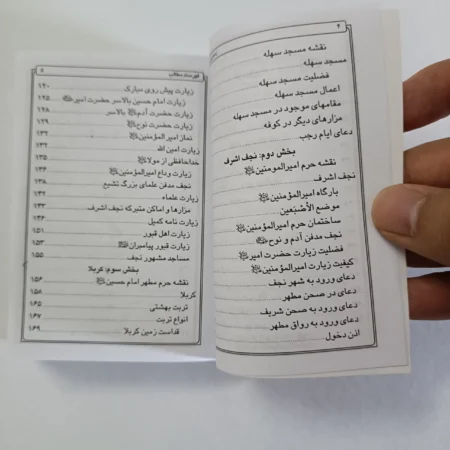 ۴
نقشه مسجد سهله
مسجد سهله
فضلیت مسجد سهله
اعمال مسجد سهله
مقامهای موجود در مسجد سهله
مزارهای دیگر در کوفه
دعای ایام رجب
بخش دوم: نجف اشرف
نقشه حرم امیرالمومنین
نجف اشرف
بارگاه امیرالمؤمنین
موضع الأصْبَعین
ساختمان حرم امیرالمؤمنین
نجف مدفن آدم و نوح
فضلیت زیارت حضرت امیر
کیفیت زیارت امیرالمؤمنین
دعای ورود به شهر نجف
دعای در صحن مطهر
دعای ورود به صحن شریف
دعای ورود به رواق مطهر
اذن دخول
فهرست مطالب ۵
زیارت پیش روی مبارک ۱۲۰
زیارت امام حسین بالاسر حضرت امیر ۱۲۵
زیارت حضرت آدم بالاسر ۱۲۸
زیارت حضرت نوح ۱۲۹
نماز امیرالمؤمنین ۱۳۲
زیارت امین الله ۱۳۲
خداحافظی از مولا ۱۳۵
زیارت وداع امیرالمؤمنین ۱۳۶
نجف مدفن علمای بزرگ تشیع ۱۳۸
زیارت علماء ۱۴۲
مزارها و اماکن متبرکه نجف اشرف ۱۴۴
زیارت نامه کمیل ۱۴۶
زیارت اهل قبور ۱۵۱
زیارت قبور پیامبران ۱۵۳
مساجد مشهور نجف ۱۵۵
بخش سوم: کربلا
نقشه حرم مطهر امام حسین ۱۵۶
کربلا ۱۵۸
تربت بهشتی ۱۶۵
انواع تربت ۱۶۷
قداست زمین کربلا ۱۶۹